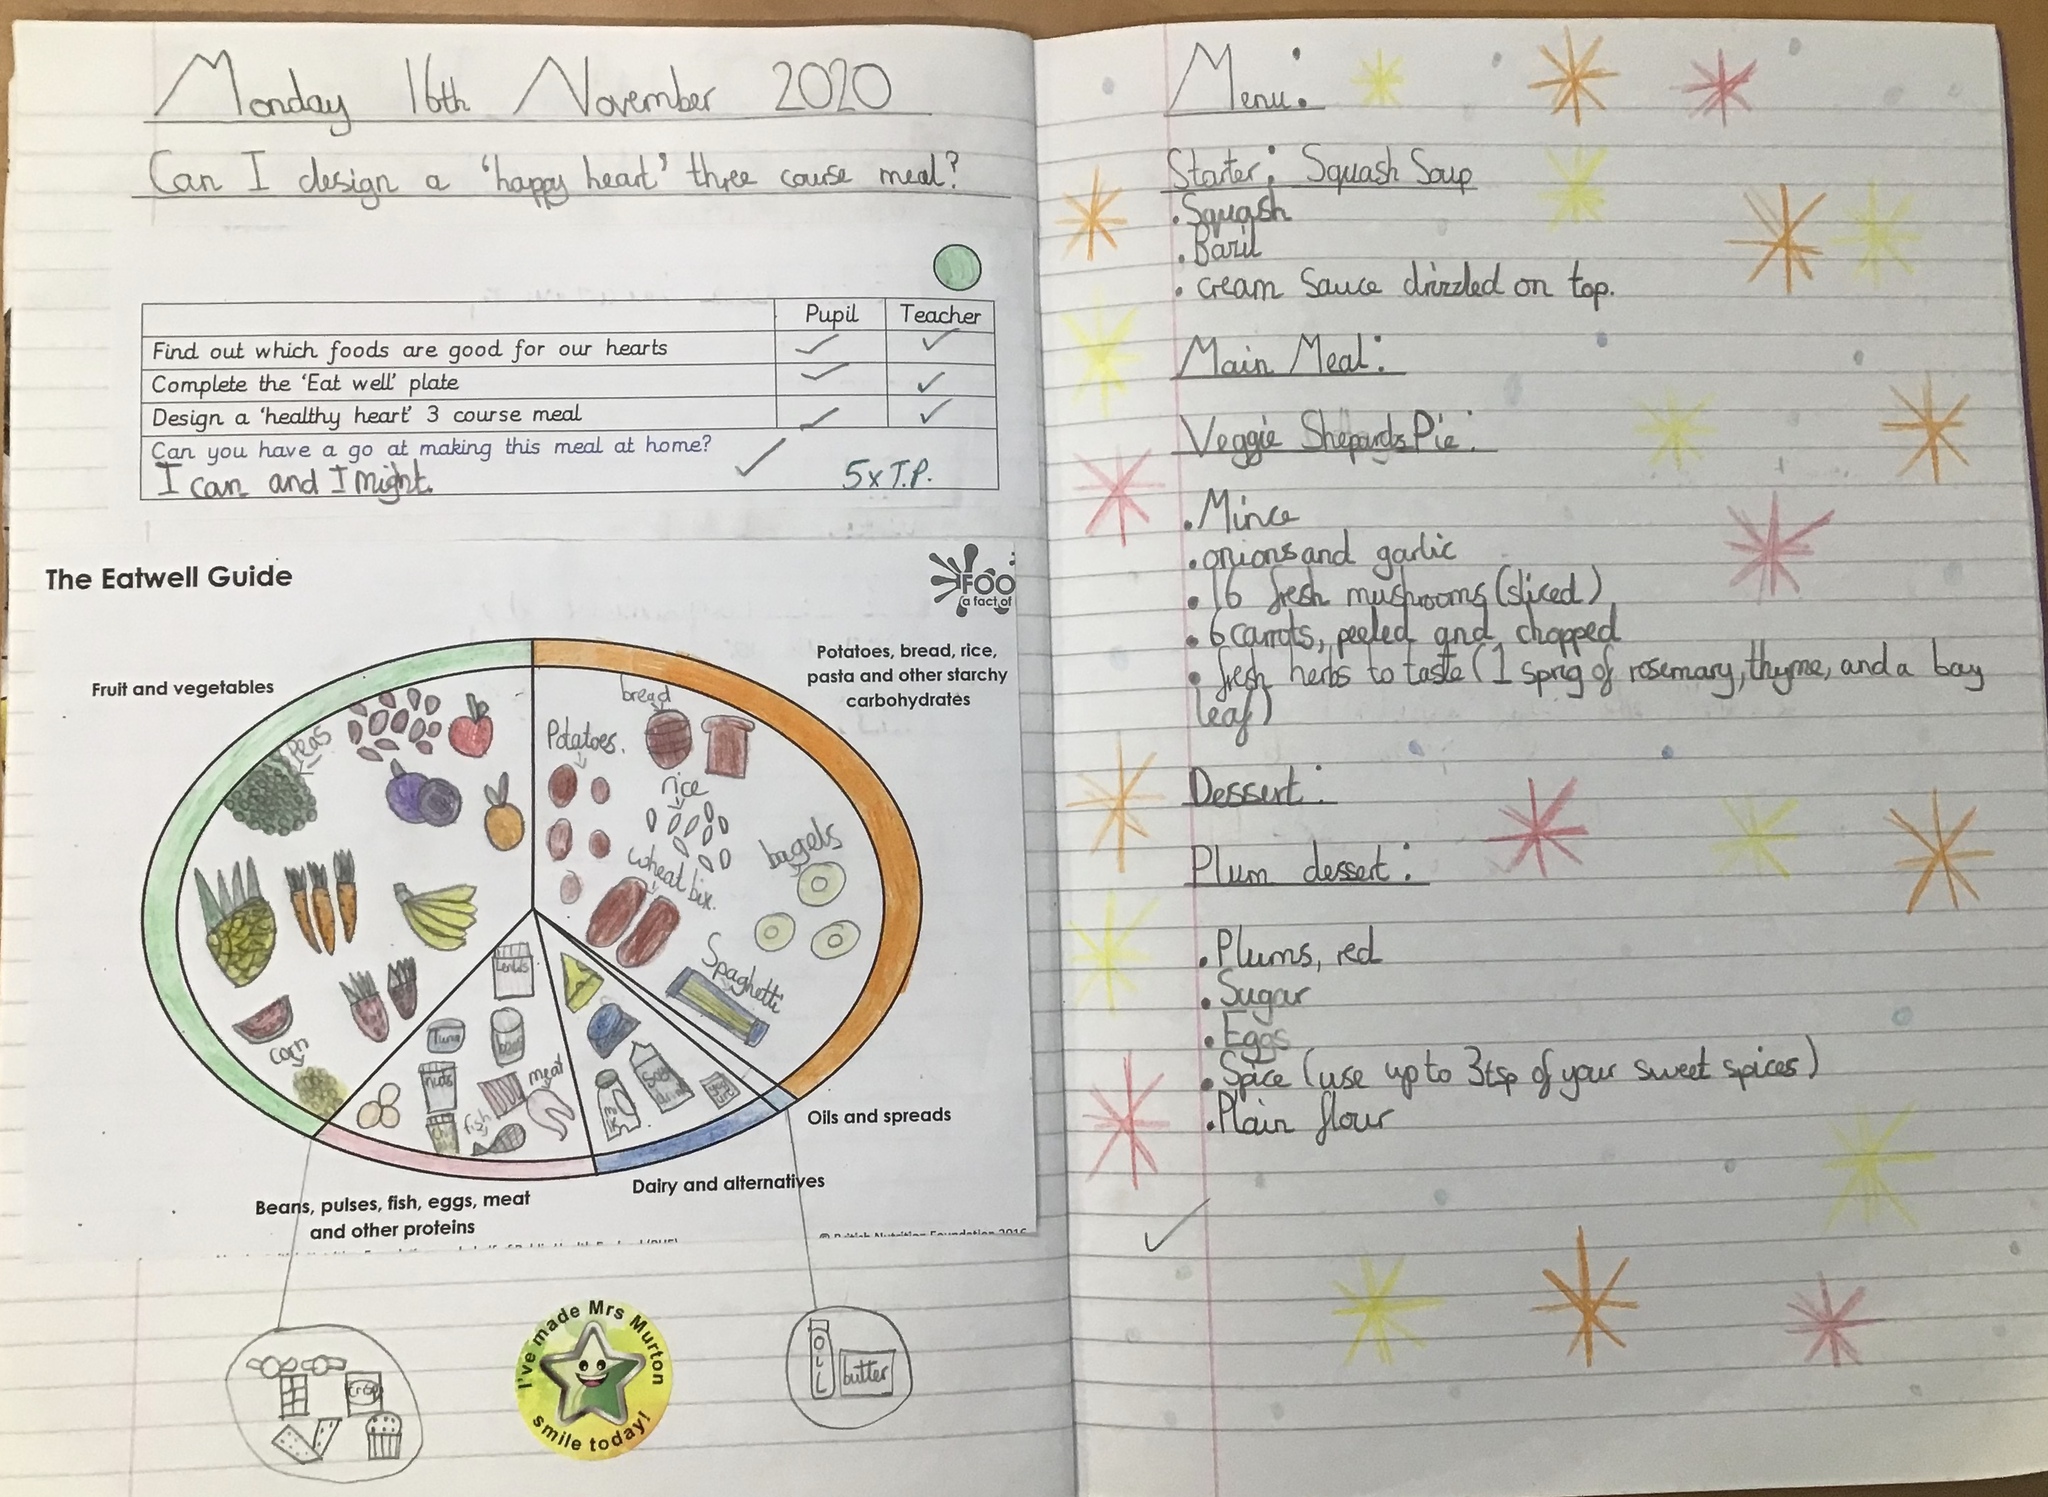 Monday 16th November 2020
Can I design a 'happy heart' three course meal?
Pupil Teacher
Find out which foods are good for our hearts
Complete the 'Eat well' plate
Design a 'healthy heart' 3 course meal
Can you have a go at making this meal at home?
I can and I might.
5xT.P.
The Eatwell Guide
FOO
a fact of
Fruit and vegetables
Potatoes, bread, rice,
pasta and other starchy
carbohydrates
peas
bread
Potatoes.
rice
wheat bix.
bagels
Spaghetti
corn
Lentils
Tuna
beans
nuts
meat
fish
milk
Soya
drink
Oils and spreads
Dairy and alternatives
Beans, pulses, fish, eggs, meat
and other proteins
© British Nutrition Foundation 2016
crisp
I've made Mrs Murton
smile today!
OIL
butter
Menu:
Starter: Squash Soup
.Squash
.Bazil
. cream sauce drizzled on top.
Main Meal:
Veggie Shepards Pie:
.Mince
.onions and garlic
. 16 fresh mushrooms (sliced)
. 6 carrots, peeled and chopped
. fresh herbs to taste (1 sprig of rosemary, thyme, and a bay
leaf)
Dessert:
Plum dessert:
.Plums, red
.Sugar
.Eggs
.Spice (use up to 3tsp of your sweet spices)
.Plain flour